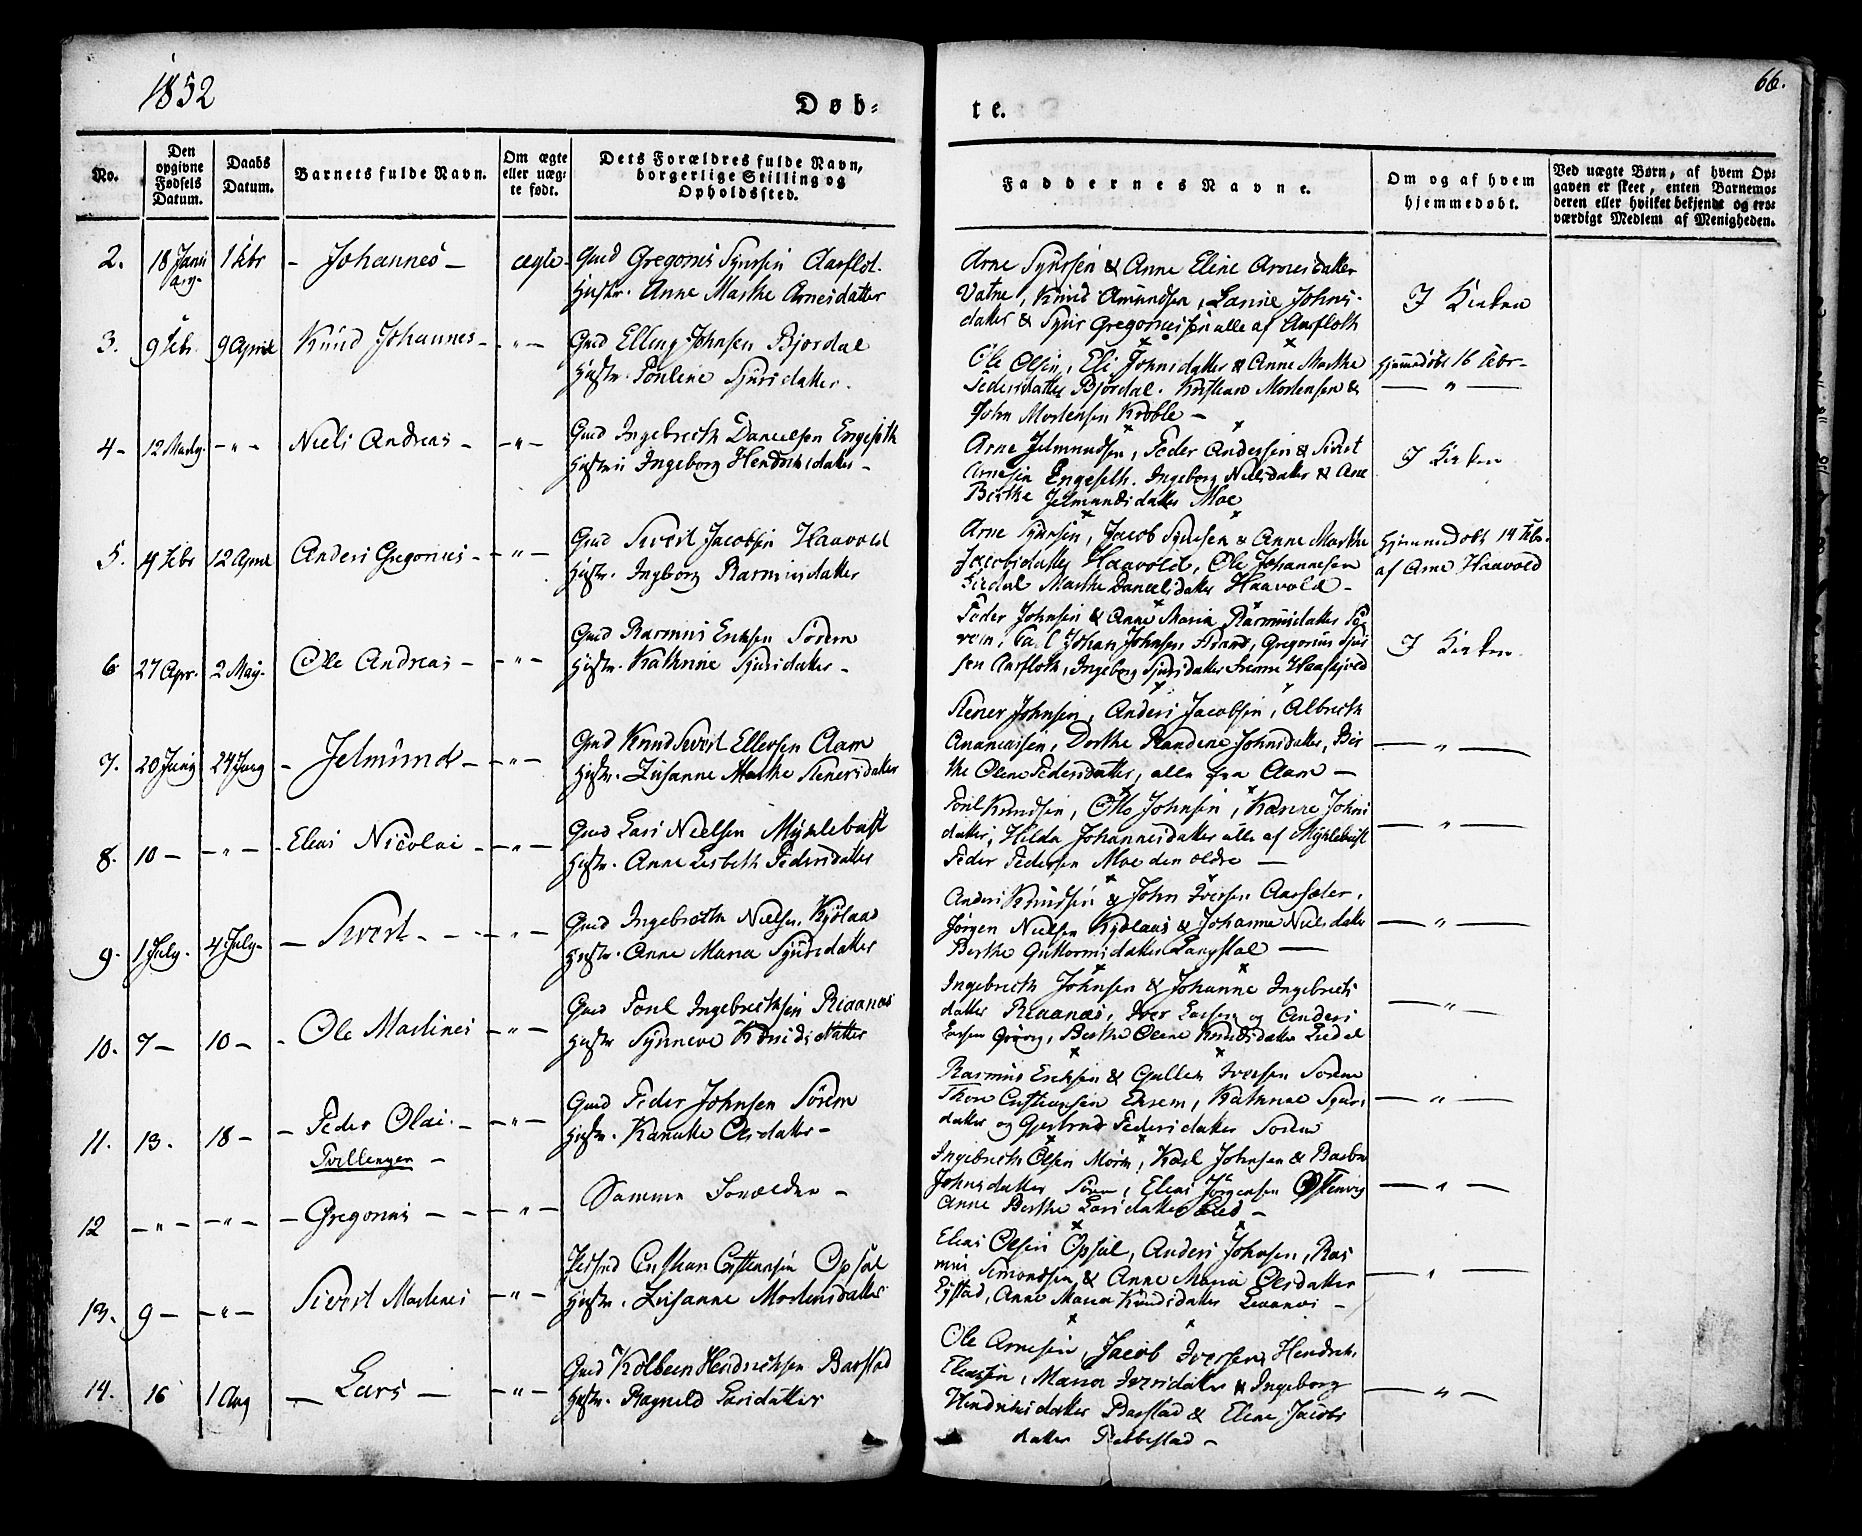 1852
Døb-
te.
66.
No.
Den opgivne Fødsels Datum.
Daabs Datum.
Barnets fulde Navn.
Om ægte eller uæg-te født.
Dets Forældres fulde Navn, borgerlige Stilling og Opholdssted.
Faddernes Navne.
Om og af hvem hjemmedøbt.
Ved uægte Børn, af hvem Op-gaven er skeet, enten Barnemo-deren eller hvilket bekjendt og tro-værdigt Medlem af Menigheden.
2. 18 Januarÿ 1 Febr - Johannes - ægte - Gmd Gregorius Syursen Aarflot.
Hustr. Anne Marthe Arnesdatter
Arne Syursen & Anne Eline Arnesdatter
Vatne, Knud Amundsen, Lavine Johns-
datter & Syur Gregoriussen alle af Aarfloth
I Kirken
3. 9 Febr. 9 April Knud Johannes - " - Gmd Elling Johnsen Bjordal
Hustr. Pouline Sjursdatter.
Ole Olsen, Eli Johnsdatter & Anne Marthe
Pedersdatter Bjordal. Kristian Mortensen &
John Mortensen Krøble -
Hjemmedøbt 16 Febr -
- " -
4 - 12 Martz. - " - Niels Andreas - - " - Gmd Ingebreth Danielsen Engeseth
Hustru Ingeborg Hendriksdatter -
Arne Jelmundsen, Peder Andersen & Sivert
Arnesen Engeseth. Ingeborg Nielsdatter & Ane
Berthe Jelmundsdatter Moe
I Kirken
5. 14 Febr 12 April Anders Gregorius - - " - Gmd Sivert Jacobsen Haavold
Hustr. Ingborg Rasmusdatter
Arne Syursen, Jacob Syursen & Anne Marthe
Jacobsdatter Haavold, Ole Johannesen
Lidal Marthe Danielsdatter Haavold -
Hjemmedøbt 14 Febr.
af Arne Haavold
6 27 Apr. 2 May - Ole Andreas - - " - Gmd Rasmus Eriksen Sørem
Hustr. Kathrine Sjursdatter -
Peder Johnsen & Anne Maria Rasmusdatter Sø-
rem, Johan Johnsen Strand, Gregorius Sjur
sen Aarfloth, Ingeborg Sjursdatter
I Kirken.
7. 20 Juny 24 Juny - Jelmund - - " - Gmd Knud Sivert Ellevsen Aam
Hustr. Zusanne Marthe Stenersdatter
Stener Johnsen, Anders Jacobsen, Albreth
Ananiassen, Dorthe Randine Johnsdatter, Ber
the Oline Pedersdatter, alle fra Aam -
- " -
8. 10 - - " - Elias Nicolai - - " - Gmd Lars Nielsen Myklebust
Hustr. Anne Lisbeth Pedersdatter
Poul Knudsen, Otto Johnsen, Karen Johns
datter, Hilda Johannesdatter alle af Myklebust
Peder Pedersen Moe den ældre -
- " -
9. 1 July. 4 July - - Sivert - - - " - Gmd Ingebreth Nielsen Kjølaas
Hustr. Anne Maria Syursdatter
Anders Knudsen & John Iversen Aarsæter,
Jørgen Nielsen Kjølaas & Johanne Nielsdatter
Berthe Guttormsdatter Langstøl -
- " -
10. 7 - 10 - - Ole Martines - " - Gmd Poul Ingebrethsen Riaanæs
Hustr Synneve Knudsdatter
Ingebreth Johnsen & Johanne Ingebreths
datter Riaanæs, Iver Larsen og Anders
Larsen Grøvig, Berthe Oline Knudsdatter Lidal
- " -
11. 13. 18 - - Peder Olai. - - " - Gmd Peder Johnsen Sørem
Tvillinger -
Hustr. Kanutte Olsdatter -
Rasmus Eriksen & Gullik Iversen Sørem
Thore Christiansen Ekrem, Kathrine Syurs
datter og Gjertrud Pedersdatter Sørem
- " -
12 - " - - " - - Gregorius - - - " - Samme Forældre -
Ingebreth Olsen Mørk, Karl Johnsen & Barbra
Johnsdatter Sørem, Elias Jørgensen Østenvig
Anne Berthe Larsdatter -
- " -
13. 9 - - " - Sivert Martines - " - Huusmd Cristian Cristiansen Opsal
Hustr. Zusanne Mortensdatter
Elias Olsen Opsal, Anders Johnsen, Ras
mus Simondsen & Anne Maria Olsdatter
Egstad, Anne Maria Knudsdatter -
- " -
14. 16 1 Aug - Lars - - " - Gmd Kolbeen Hendriksen Barstad
Hustr. Ragnild Larsdatter
Ole Arnesen, Jacob Iversen, Hendrik
Eliassen, Maria Iversdatter & Ingeborg
Hendriksdatter Barstad & Eline Jacobs
datter Rebbestad -
- " -